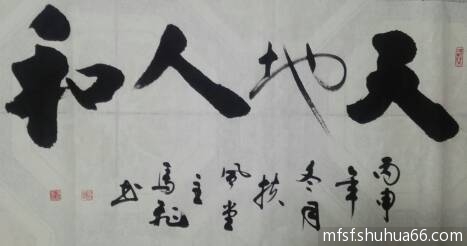 天地人和
丙申
年
冬月
扶
風堂
主
馬
书
mfsf.shuhua66.com